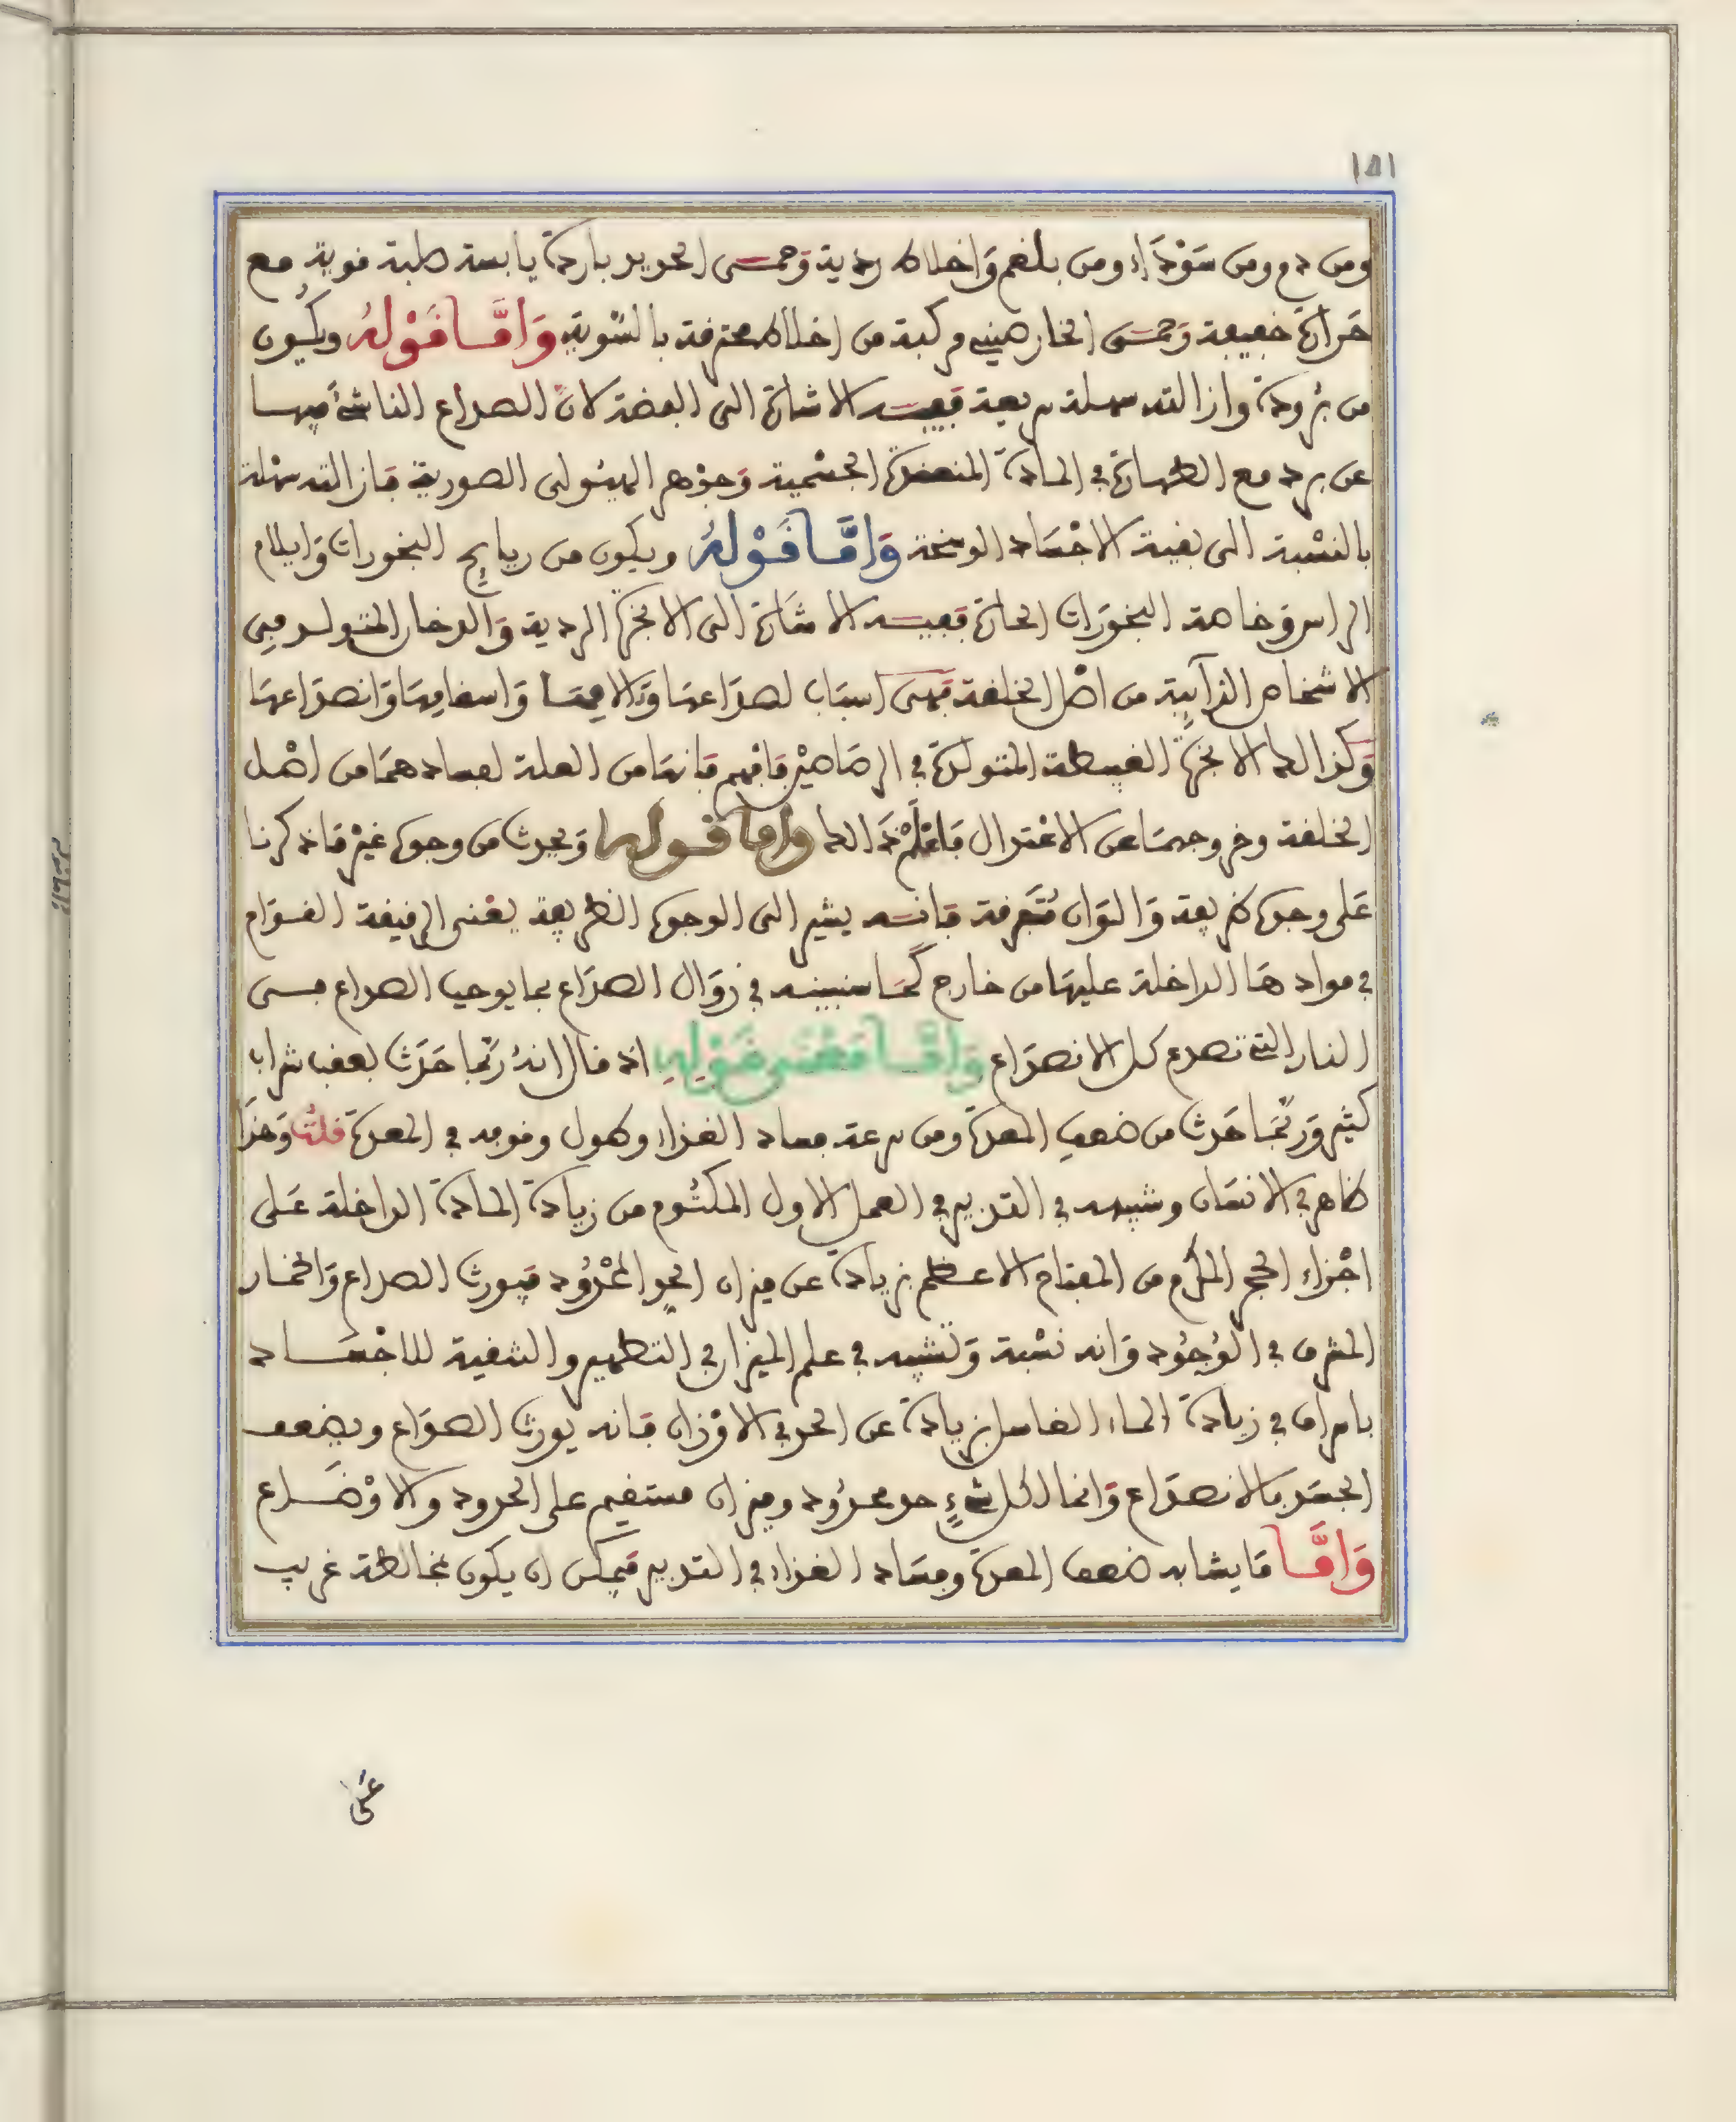 ١٥١
ومن دم ومن سَوْدَاء ومن بلغم وَاخلاط ردية وَجمسى الحديد باردة يابسة صلبة قوية مع
حَرارة خفيفة وَجسَى الخارصينى مركبة من اخلاط محترقة بالسْوية وَامَّا قَوْلهُ ويكُون
من بُرودة وازالته سهلة سريعة ففيـه الاشارة الى الفضة لانّ الصداع الناشئَ فيهـا
عن برد مع الطهارة في المادة المنعقدة الجسْمية وَجوْهر الهيُولى الصورية فازالته سهْلة
بالنسْبة الى بقية الاجْسَاد الوسخة وَامَّا قَوْلهُ ويكون من رياح البخورات وَايلام
الراس وخاصة البخوَرات الحارة ففيـه الاشَارة الى الابخرة الردية وَالدخان المتولد في
الاشخاص الذآيبة من اصْل الخلقة فهى اسبَاب لصدَاعهَا وَءالامهَا وَاسقامهَا وَانصدَاعهَا
وَكذالك الابخرة الغليظة المتولدة في الرصَاصيْن فافهم فانهَا من العلة لفسادهمَا من اصْل
الخلقة وخروجهمَا عن الاعْتدال فاعْلمْ ذَالك وامَا قوله وَيحدث من وجوه غيْر مَا ذكرنا
عَلى وجوه ظريفة وَالوَان مُتَفرقة فانـه يشير الى الوجوه الظريفة يعْنى الرقيقة القـوَام
في موادهَا الداخلة عليهَا من خارج كَمَا سنبينـه في زوَال الصدَاع بما يوجب الصداع مـن
النار التي تصدع كل الانصدَاع وَامَّـا مَعْنَى قَوْلِهِ اذ قال انهُ رُبَّما حَدَث بعقب شراب
كثير وَربَّمَا حَدث من ضعف المعدة ومن سرعة فساد الغذاء وطول وقوفه في المعدة قلتُ وَهذَا
ظاهر في الانسَان وشبهـه في التدبير في العمل الاول المكتُوم من زيادة المادة الداخلة عَلى
اجْزاء الحجر المكَرم من المفتاح الاعـظم بزيادة عن ميزان الحد المحْدُود فيورث الصداع وَالخمار
المشرف في الوُجوُد وَانه نسْبة وَتشبيه في علم الميزان في التطهير والتنقية للاجْسـاد
بامراف في زيادة المـاء الغاسل بزيادة عن الحد في الاوْزان فانه يورث الصدَاع ويضعف
الجسَد بالانصدَاع وَانمَا لكل شَيءٍ حد محدُود وميزان مستقيم على الحدود والاوْضَـاع
وَامَّـا مَا يشابه ضعف المعدة وفسَاد الغذاء في التدبير فيمكن ان يكون مخالطة غريب